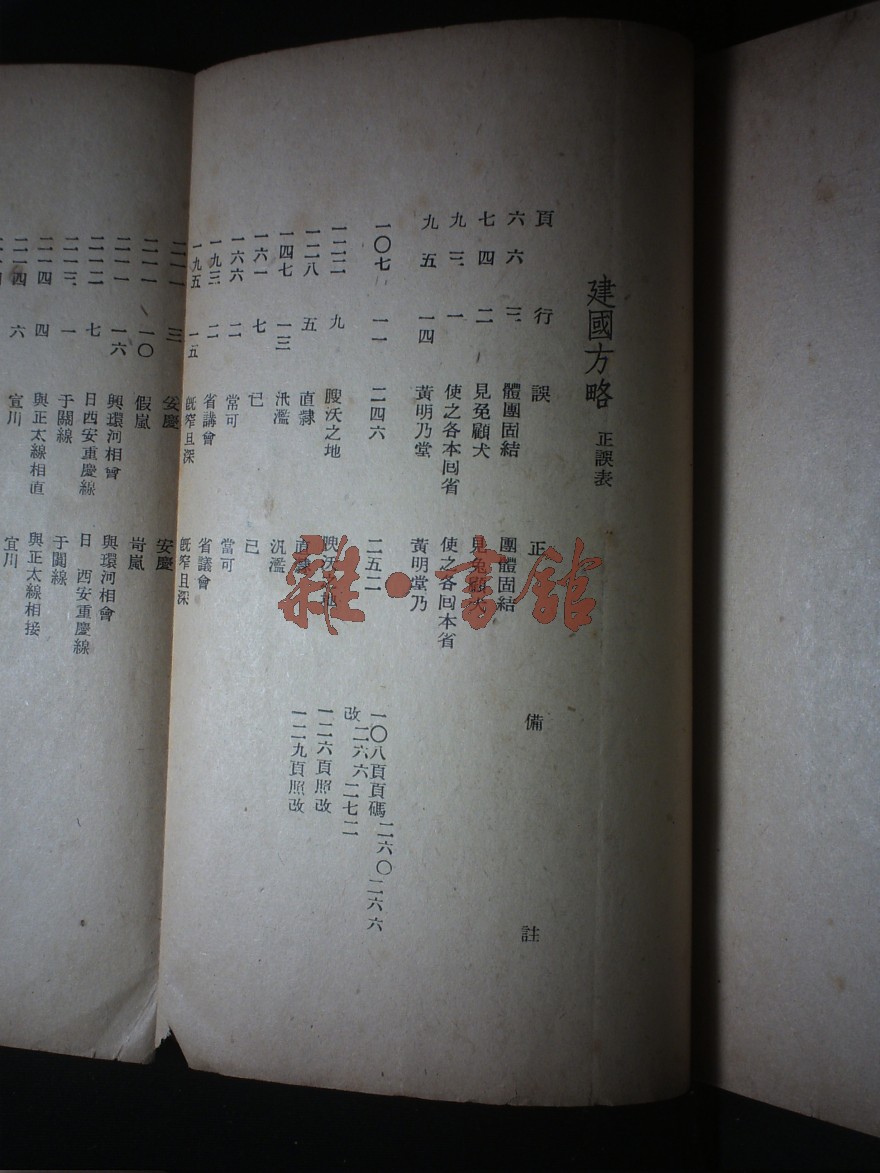 建國方略 正誤表
頁 行 誤 正 備 註
六六 三 體團固結 團體固結
七四 二 見兔顧犬 見兔顧犬
九三 一 使之各本囘省 使之各囘本省
九五 一四 黃明乃堂 黃明堂乃
一〇七 一一 二四六 二五二 一〇八頁頁碼二六〇二六六
改二六六二七二
一二二 九 腴沃之地 腴沃之地 一二六頁照改
一二八 五 直隸 直隸 一二九頁照改
一四七 一三 汎濫 汎濫
一六一 七 已 已
一六六 二 常可 當可
一九三 二 省講會 省議會
一九五 一五 旣窄旦深 旣窄且深
二一一 三 安慶 安慶
二一一 一〇 假嵐 岢嵐
二一一 一六 興環河相會 與環河相會
二一二 七 日西安重慶線 日 西安重慶線
二一三 一 于關線 于闐線
二一四 四 與正太線相直 與正太線相接
二一四 六 宣川 宜川
雜·書館